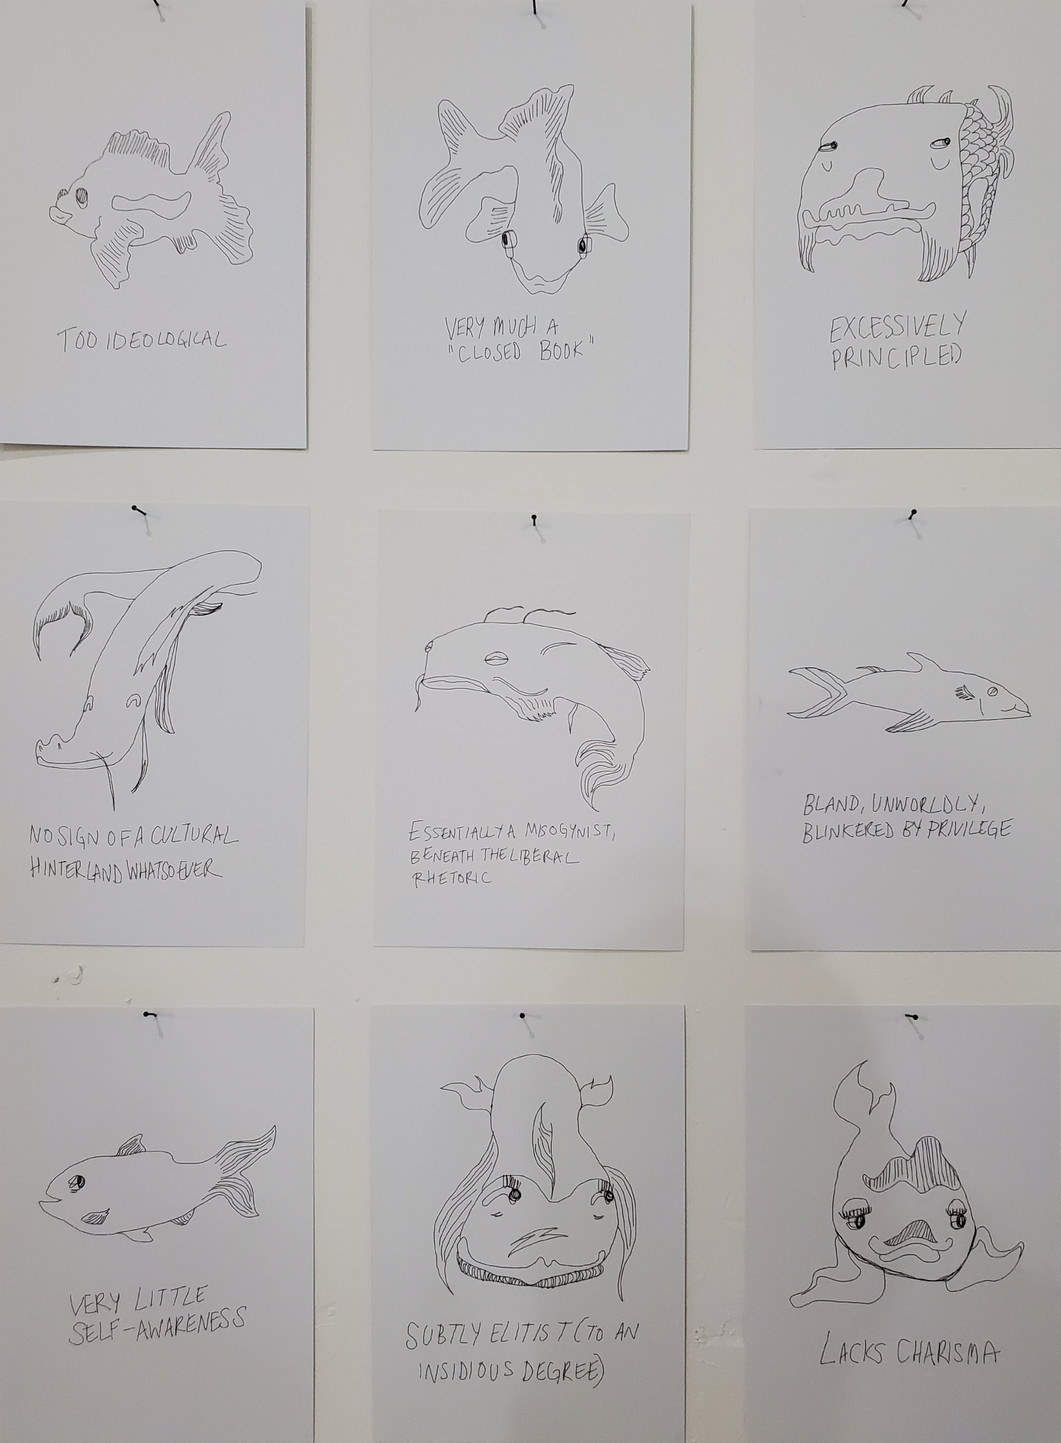 TOO IDEOLOGICAL
VERY MUCH A
"CLOSED BOOK"
EXCESSIVELY
PRINCIPLED
NO SIGN OF A CULTURAL
HINTERLAND WHATSOEVER
ESSENTIALLY A MISOGYNIST,
BENEATH THE LIBERAL
RHETORIC
BLAND, UNWORLDLY,
BLINKERED BY PRIVILEGE
VERY LITTLE
SELF-AWARENESS
SUBTLY ELITIST (TO AN
INSIDIOUS DEGREE)
LACKS CHARISMA